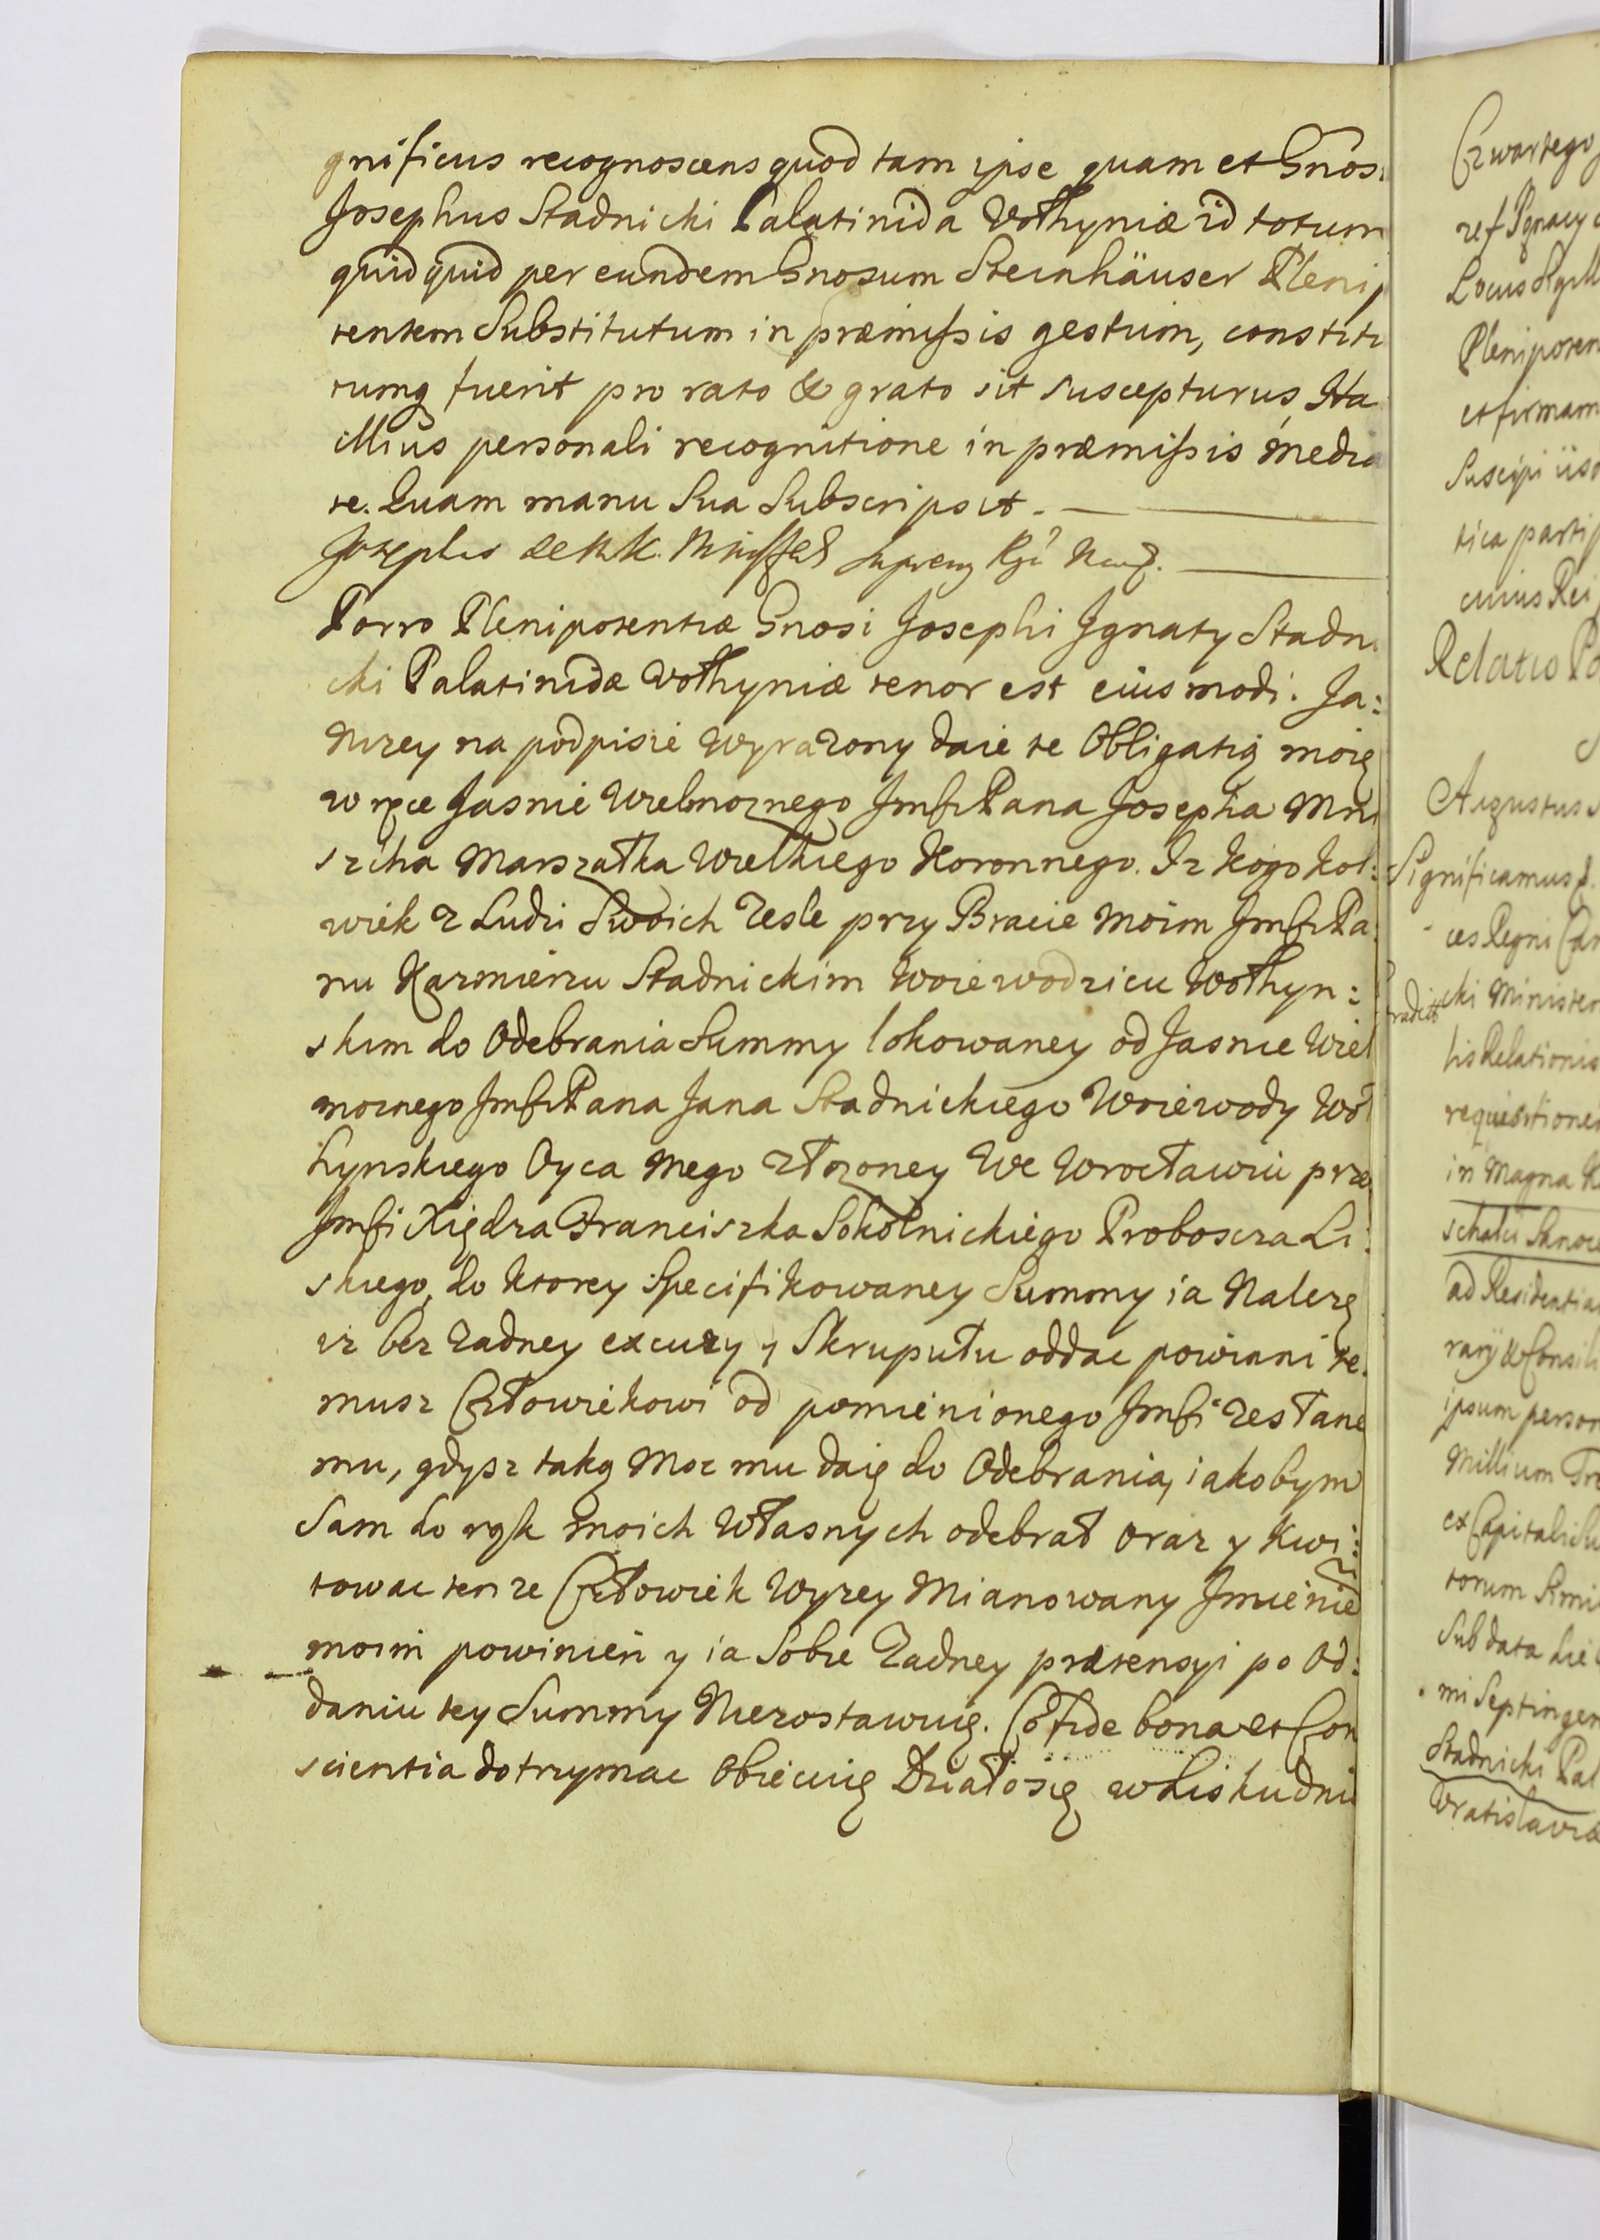 gnificus recognoscens quod tam ipse quam et Gnos:
Josephus Stadnicki Palatinida Wołhyniæ id totum
quidquid per eundem Gnosum Steinhäuser Plenip
tentem Substitutum in præmissis gestum, constitu
tumq fuerit pro rato & grato sit suscepturus, Sta
illius personali recognitione in præmissis media
te. Quam manu Sua Subscripsit. —
Josephus
Porro Plenipotentiæ Gnosi Josephi Jgnaty Stadni
cki Palatinidæ Wołhyniæ tenor est eiusmodi. Ja:
Nizey na podpisie wyrazony daie te Obligatią moię
w ręce Jasnie Wielmoznego Jmści Pana Josepha Mni
szcha Marszałka Wielkiego Koronnego. Iz kogo kol:
wiek z Ludzi Swoich zesle przy Bracie Moim Jmści Pa
nu Kazmierzu Stadnickim Woiewodzicu Wołhyn:
skim do Odebrania Summy lokowaney od Jasnie Wiel
moznego Jmści Pana Jana Stadnickiego Woiewody Woł
hynskiego Oyca Mego złozoney We Wrocławiu prze
Jmści Xiędza Franciszka Sokolnickiego Proboscza Li:
skiego, do ktorey Specifikowaney Summy ia Nalezę
iz bez zadney excuzy y Skrupułu oddac powinni te
musz Człowiekowi od pomienionego Jmści zesłane
mu, gdysz taką Moc mu daię do Odebrania, iakobym
Sam do rąk moich własnych odebrał oraz y kwi:
towac tenze Człowiek Wyzey Mianowany Jmienie
moim powinien y ia Sobie zadney prætensyi po Od:
daniu tey Summy Niezostawuię. Co fide bona et Con
scientia dotrzymac Obiecuię Działosię w Lisku dni
Czwartego
zef Jgnacy
Locus Sygill
Plenipoten
et firmam
Suscipi
tica parti
cuius Rei
Relatio Po
Augustus
Significamus
ces Regni
cki Minister
his Relationis
requisitione
in Magna
schalci
ad Residentia
rarÿ & Consili
ipsum person
Millium
ex Capitali
torum
Sub data die
mi Septingen
Stadnicki Pal
Wratislaviæ